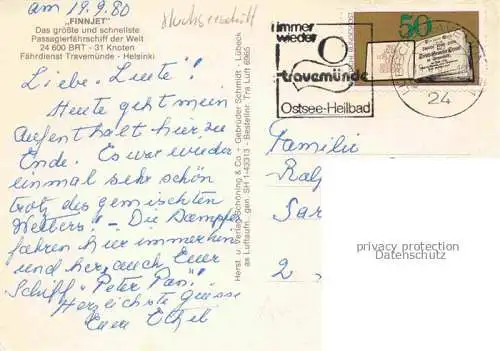 am 19.9.80
"FINNJET"
Das größte und schnellste
Passagierfährschiff der Welt
24 600 BRT - 31 Knoten
Fährdienst Travemünde - Helsinki
Liebe Leute!
Heute geht mein
Aufenthalt hier zu
Ende. Es war wieder
einmal sehr schön
trotz des gemischten
Wetters! - Die Dampfer
fahren hier immer hin
und her, auch Euer
Schiff "Peter Pan"!
Herzlichste Grüsse
Eure Ethel
Herst. u. Verlag Schöning & Co + Gebrüder Schmidt - Lübeck
ax Luftaufn. gen. SH 1-43313 - Bestellnr. Tra Luft 6965
immer
wieder
travemünde
Ostsee-Heilbad
50
24
Familie
Ralf
Sar
2
privacy protection
Datenschutz